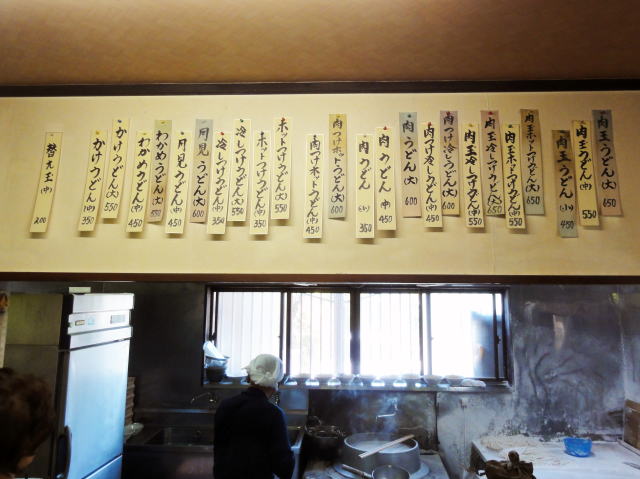 肉玉うどん(大)650
肉玉うどん(中)550
肉玉うどん(小)450
肉玉ホットつけうどん(大)650
肉玉ホットつけうどん(中)550
肉玉冷しつけうどん(大)650
肉玉冷しつけうどん(中)550
肉つけ冷しうどん(大)600
肉つけ冷しうどん(中)450
肉うどん(大)600
肉うどん(中)450
肉うどん(小)350
肉つけホットうどん(大)600
肉つけホットうどん(中)450
ホットつけうどん(大)550
ホットつけうどん(中)350
冷しつけうどん(大)550
冷しつけうどん(中)350
月見うどん(大)600
月見うどん(中)450
わかめうどん(大)550
わかめうどん(中)450
かけうどん(大)550
かけうどん(中)350
替え玉(中)200